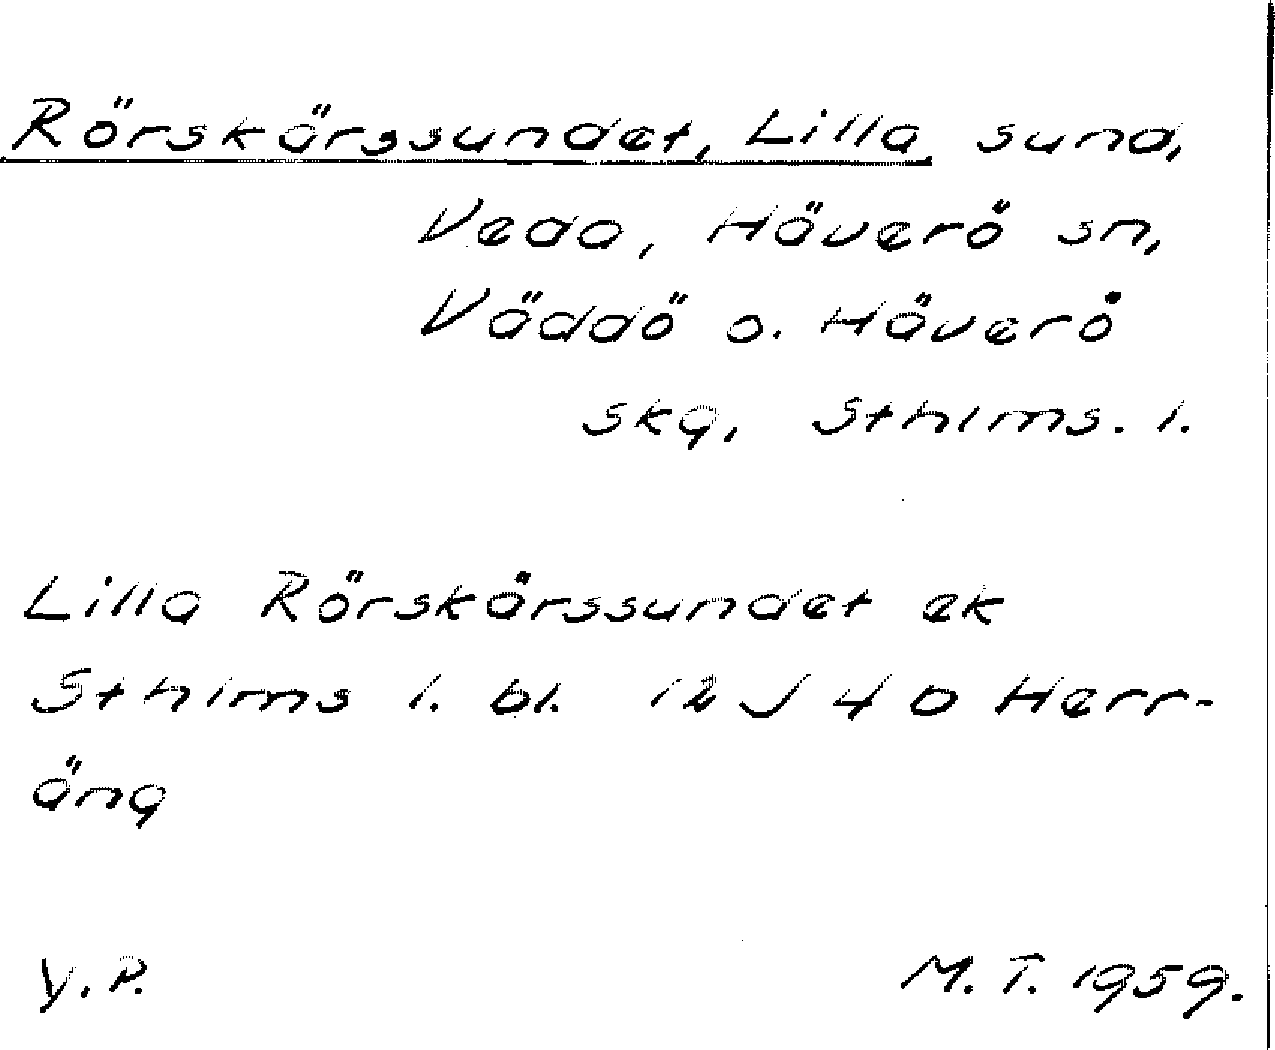 Rörskärssundet, Lilla, sund,
Veda, Häverö sn,
Väddö o. Häverö
skg, Sthlms. l.
Lilla Rörskärssundet ek
Sthlms l. bl. 12 J 40 Herr-
äng
Y.P. M.T. 1959.